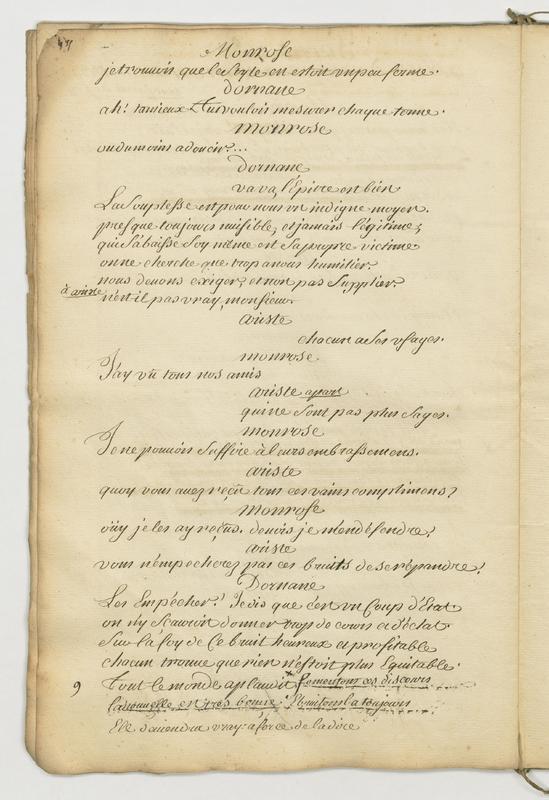 Monrose
je trouvois que le style en estoit un peu ferme.
Dornane
ah! tant mieux. tu voulois mesurer chaque terme.
monrose
ou du moins adoucir?...
Dornane
va va, l'épitre est bien
La souplesse est pour nous un indigne moyen.
presque toujours nuisible, et jamais légitime;
qui s'abaisse soy même est sa propre victime
on ne cherche que trop a nous humilier.
nous devons exiger, et non pas supplier.
à ariste n'est il pas vray, monsieur
ariste
chacun a ses usages.
monrose
J'ay vû tous nos amis
ariste apart
qui ne sont pas plus sages.
monrose
Je ne pouvois suffire à leurs embrassemens.
ariste
quoy vous avez reçû tous ces vains complimens?
Monrose
oüy je les ay reçûs. devois je m'en défendre?
ariste
vous n'empecherez pas ces bruits de se répandre?
Dornane
Les Empêcher? Je dis que c'est un Coup d'Etat
on n'y scauroit donner trop de cours et d'éclat.
Sur la foy de ce bruit heureux et profitable
chacun trouve que rien n'estoit plus Equitable.
9 Tout le monde aplaudit, fomentons ces discours
la nouvelle est très bonne. Ebruitons la toujours
Elle deviendra vraye à force de la dire